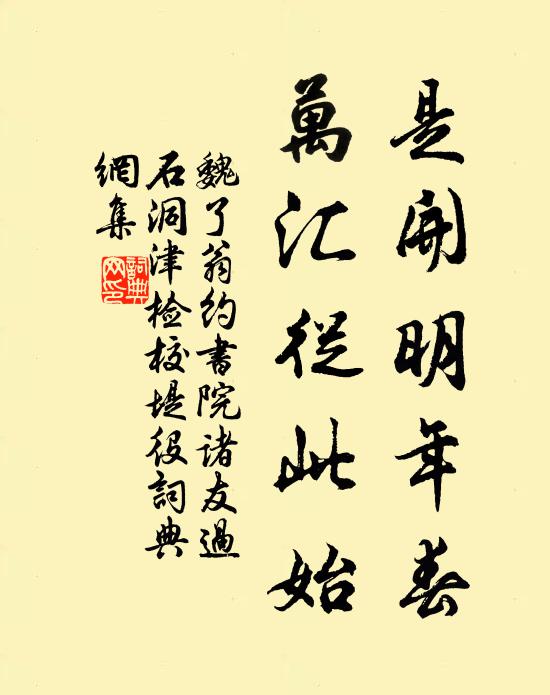 是開明年春
萬汇從此始
魏了翁約書院诸友過
石洞津检校堤役詞典
網集
詞典
网印